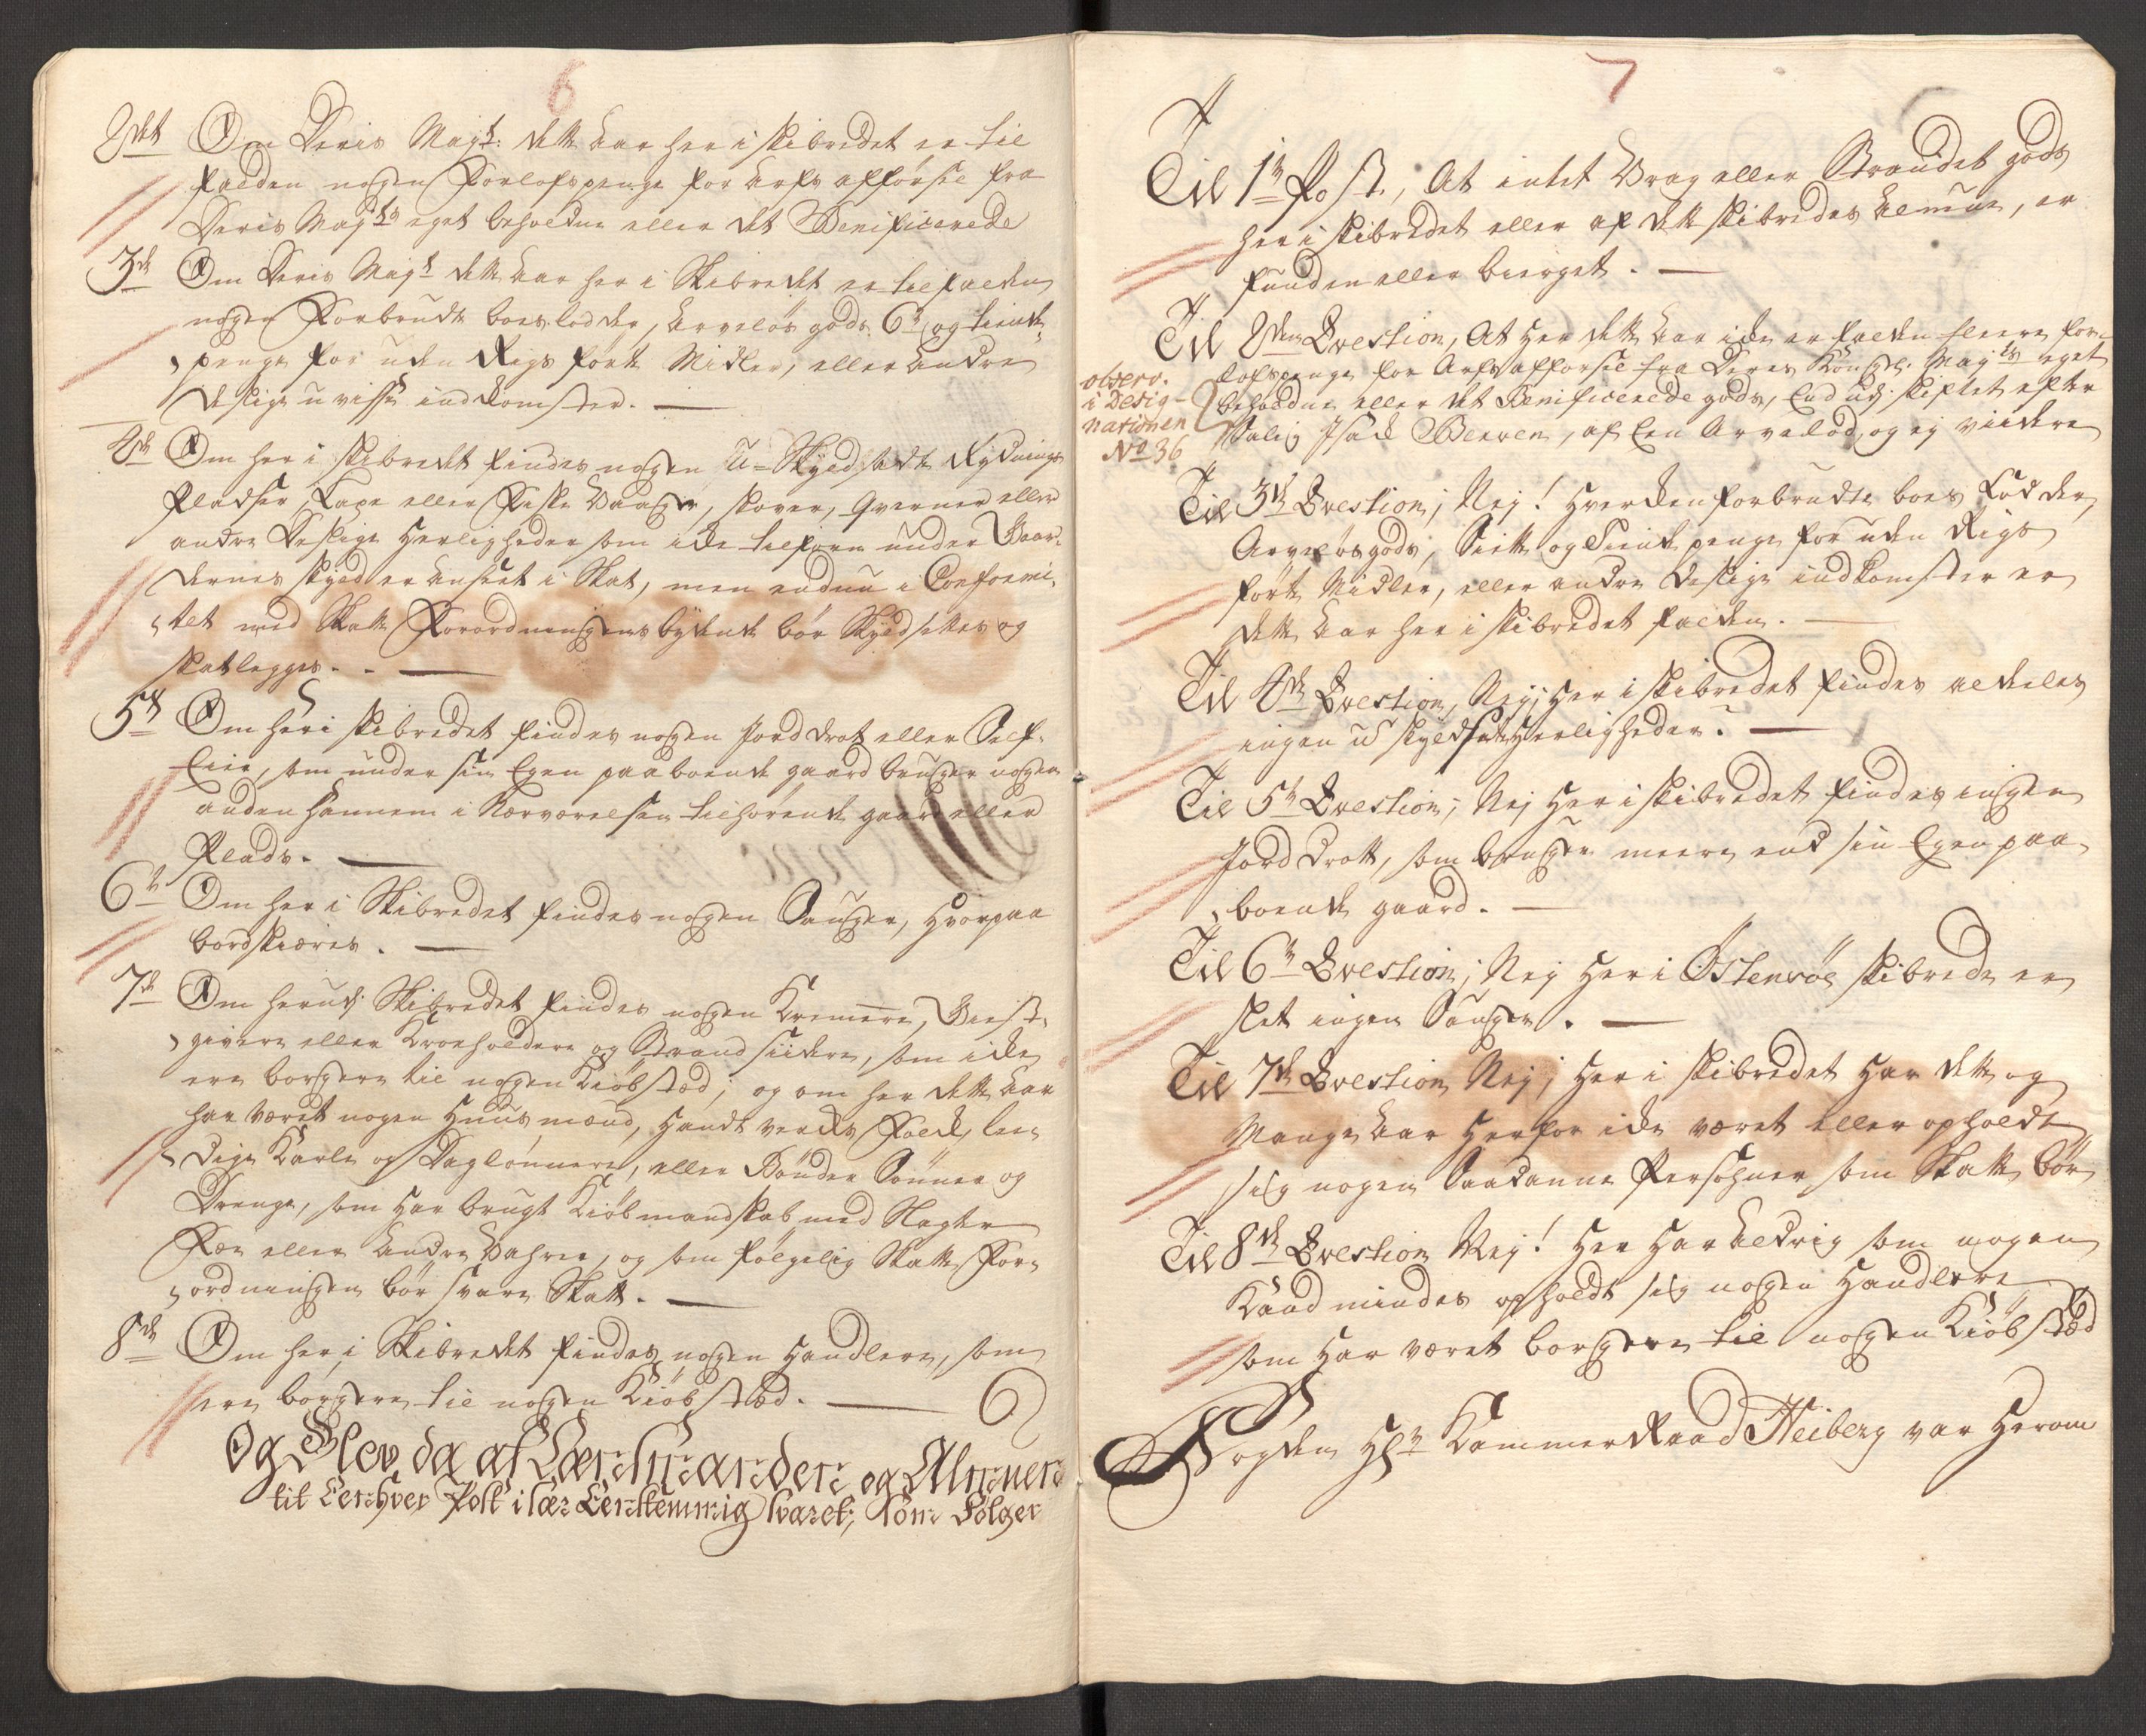 6
2det Om Deris Mayt: dette Aar her i skibredet er til
falden nogen Forlofspenge for Arfs afførsel fra
Deris Mayts eget beholdne eller det Benificerede
3de Om Deris Mayt dette Aar her i Skibredet er tilfalden
nogen Forbrudte boeslodder, Arveløs gods 6te og tiende
penge for uden Rigs førte Midler, eller andre
deslige uvisse indkomster.
4de Om her i skibredet findes nogen U-Skyldsadte Rydnings
Pladser, Laxe eller Fiske Vaager, skover, Qverner eller
andre Deslige Herligheder som icke tilforn under Gaar-
dernes skyld er anseet i Skat, men endnu i Conformi-
tet med Skatte Forordningens bydende bør Skyldsettes og
skatlegges.
5te Om her i skibredet findes nogen Jorddrot eller Self-
Eier, som under sin Egen paaboende gaard bruger nogen
anden hannem i Nærværelsen tilhørende gaard eller
Plads.
6te Om her i Skibredet findes nogen Sauger, hvorpaa
bord skiæres.
7de Om herudj Skibredet findes nogen Kremere, Giest-
givere eller Kroeholdere og Strandsiidere, som icke
ere borgere til nogen Kiøbstæd; og om her dette Aar
har været nogen Huusmænd, Handtverks Folck, Lee-
dige Karle og Daglønnere, eller Bønder Sønner og
Drenge, som har brugt Kiøbmandskab med Slagte
Fæe eller Andre Vahrer, og som følgelig Skatte For-
ordningen bør svare Skatt.
8de Om her i Skibredet findes nogen Handlere, som
ere borgere til nogen Kiøbstæd.
Og Blev da af Lænsmanden og Almuen
til Eenhver Post i sær Eenstemmig svaret, som Følger
7
Til 1te Post, At intet Vrag eller Strandet gods
her i skibredet eller af dette skibredes Almue, er
funden eller bierget.
Til 2den Qvestion, At her dette Aar icke er falden fleere for-
lofspenge for Arfs afførsel fra Deres Kongl: Mayts eget
beholdne eller det Benificerede gods, End udj skiftet efter
Salig Isack Bleven, af Een Arvelod, og ej viidere
observ.
i Desig-
nationen
No 36
Til 3de Qvestion; Nej! hverken forbrudte boes Lodder,
Arveløs gods, Siette og Tiende penge for uden Rigs
førte Midler, eller andre deslige indkomster er
dette Aar her i skibredet falden.
Til 4de Qvestion, Nej, her i skibredet findes aldeles
ingen u skyldsatte Herligheder.
Til 5te Qvestion; Nej her i skibredet findes ingen
Jord Drott, som bruger meere end sin Egen paa-
boende gaard.
Til 6te Qvestion; Nej her i Østensøe skibrede er
slet ingen Sauger.
Til 7de Qvestion Nej; her i skibredet har dette og
Mange Aar herfor icke været eller opholdt
sig nogen Saadanne Persohner som Skatte bør
Til 8de Qvestion Nej! her har Aldrig som nogen
Kand mindes opholdt sig nogen Handlere
som har været borgere til nogen Kiøbstæd
Fogden Hr Kammer Raad Heiberg var herom